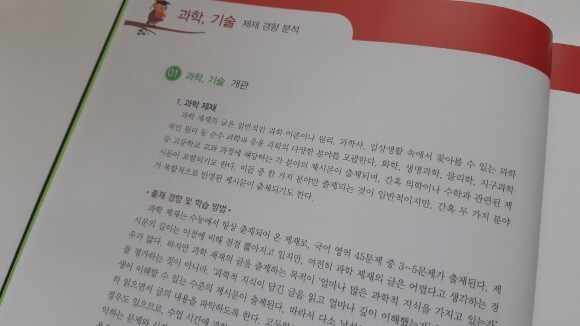 과학, 기술 제재 경향 분석
01 과학, 기술 개관
1. 과학 제재
과학 제재의 글은 일반적인 과학 이론이나 원리, 과학사, 일상생활 속에서 찾아볼 수 있는 과학
적인 원리 등 순수 과학과 응용 과학의 다양한 분야를 포괄한다. 화학, 생명과학, 물리학, 지구과학
등 고등학교 교과 과정에 해당하는 각 분야의 제시문이 출제되며, 간혹 의학이나 수학과 관련된 제
시문이 포함되기도 한다. 이들 중 한 가지 분야만 출제되는 것이 일반적이지만, 간혹 두 가지 분야
가 복합적으로 반영된 제시문이 출제되기도 한다.
• 출제 경향 및 학습 방법 •
과학 제재는 수능에서 항상 출제되어 온 제재로, 국어 영역 45문제 중 3~5문제가 출제된다. 제
시문의 길이는 이전에 비해 점점 짧아지고 있지만, 여전히 과학 제재의 글은 어렵다고 생각하는 경
우가 많다. 하지만 과학 제재의 글을 출제하는 목적이 '얼마나 많은 과학적 지식을 가지고 있는가'
를 평가하는 것이 아니라, '과학적 지식이 담긴 글을 읽고 얼마나 깊이 이해했는가
생이 이해할 수 있는 수준의 제시문이 출제된다. 따라서 다소
히 읽으면서 글의 내용을 파악하도록 한다.
경우도 있으므로, 수업 시간에
악하는 문제와